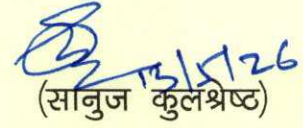 13/5/26
(सानुज कुलश्रेष्ट)